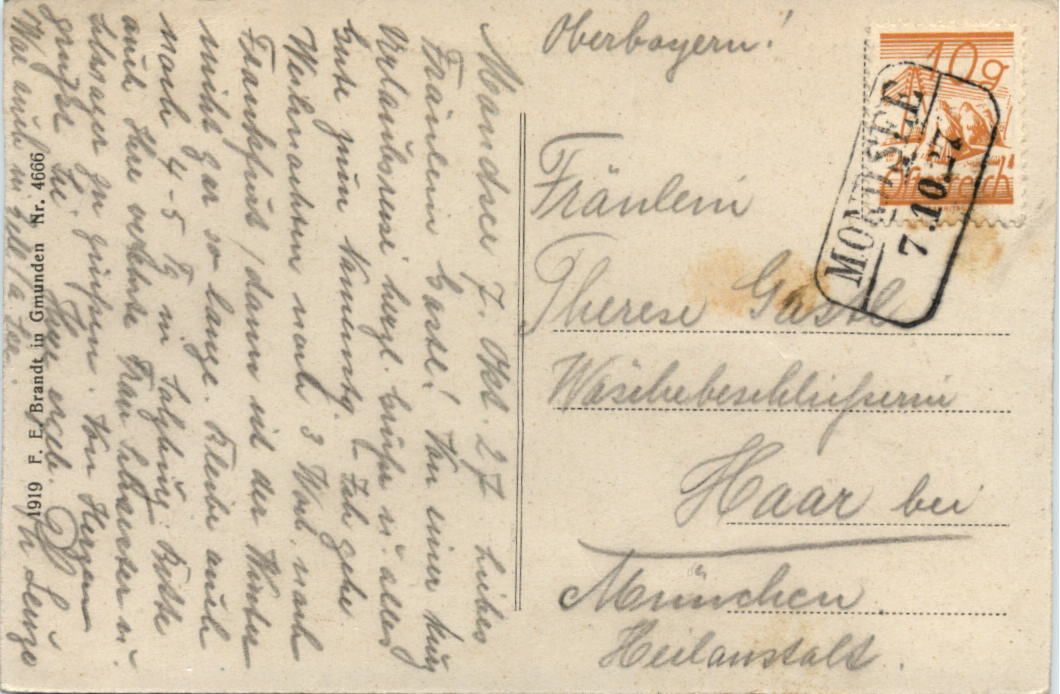 Mondsee 7. Okt. 27 Liebes
Fräulein Gassl! Von einer kurz
Urlaubsreise herzl. Grüße u. alles
Gute zum Namenstg. Ich gehe
Weihnachten nach 3 Woch. nach
Frankfurt, dann ist der Winter
nicht gar so lange. Bleibe auch
noch 4-5 Tg in Salzburg. Bitte
auch Ihre verehrte Frau Schwester u.
Schwager zu grüßen. Von Herzen
grüßt Sie Ihre ergeb.
War auch in Zell a/ See.
Oberbayern!
Fräulein
Therese Gassl
Wäschebeschließerin
Haar bei
München
Heilanstalt.
10g
Österreich
MONDSEE
7.10.27
1919 F. E. Brandt in Gmunden Nr. 4666